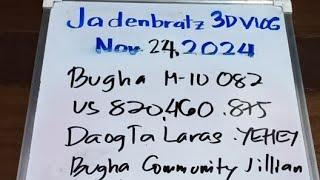 Jadenbratz 3D VLOG
Nov. 24, 2024
Bugha M-10 082
US 820.460.875
DaogTa Laras. YEHEY
Bugha Community Jillian